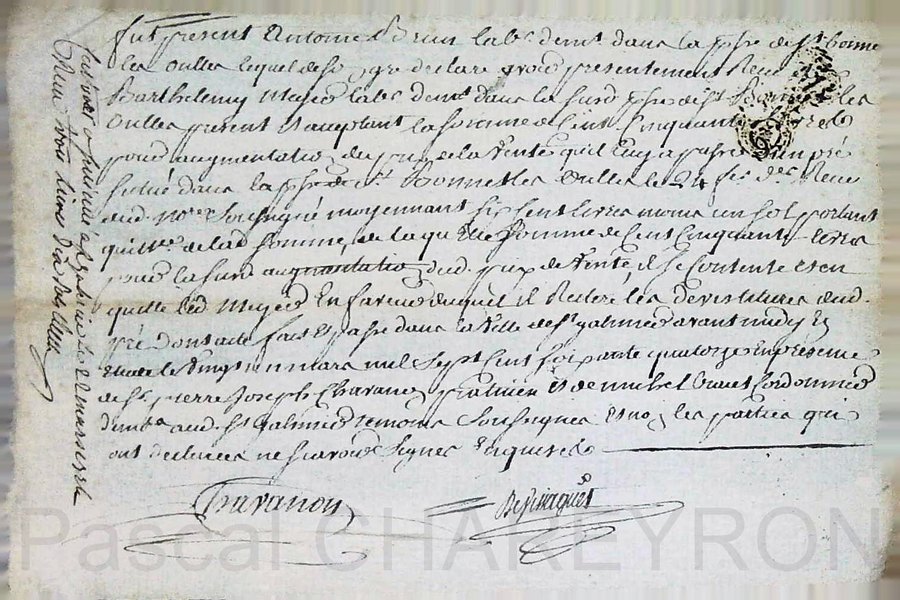 fut present Antoine labr demt dans la psse de St bonne
les Oulles lequel de so gre declare avoir presentement Receu de
Barthelemy Mejer labr demt dans la susd psse de St Bonnet les
Oulles present et acceptant la somme de Cent Cinquante livres
pour augmentation du prix de la Vente qu'il luy a passé d'un pré
situé dans la psse de St Bonnet les Oulles le 24 des Receu
aud. nore soussigné moyennant six cent livres moins un sol portant
quittce de lad somme, de laquelle somme de Cent Cinquante livres
pour la susd augmentation dud. prix de Vente il se Contente et en
quitte led Mejer En faveur duquel il Reitere les devestitures dud.
pré dont acte fait et passé dans la Ville de St galmier avant midy
Etude le Vingt un mars mil Sept Cent soixante quatorze En presence
de Sr pierre Joseph Chavanon praticien et de michel Cordonnier
demts aud. St Galmier temoins Soussignés et non les parties qui
ont declarées ne scavoir Signer Enquises
Chavanon
controllé a St galmier le 21 mars 1774
Reçu trois livres dix sols
Pascal CHAREYRON